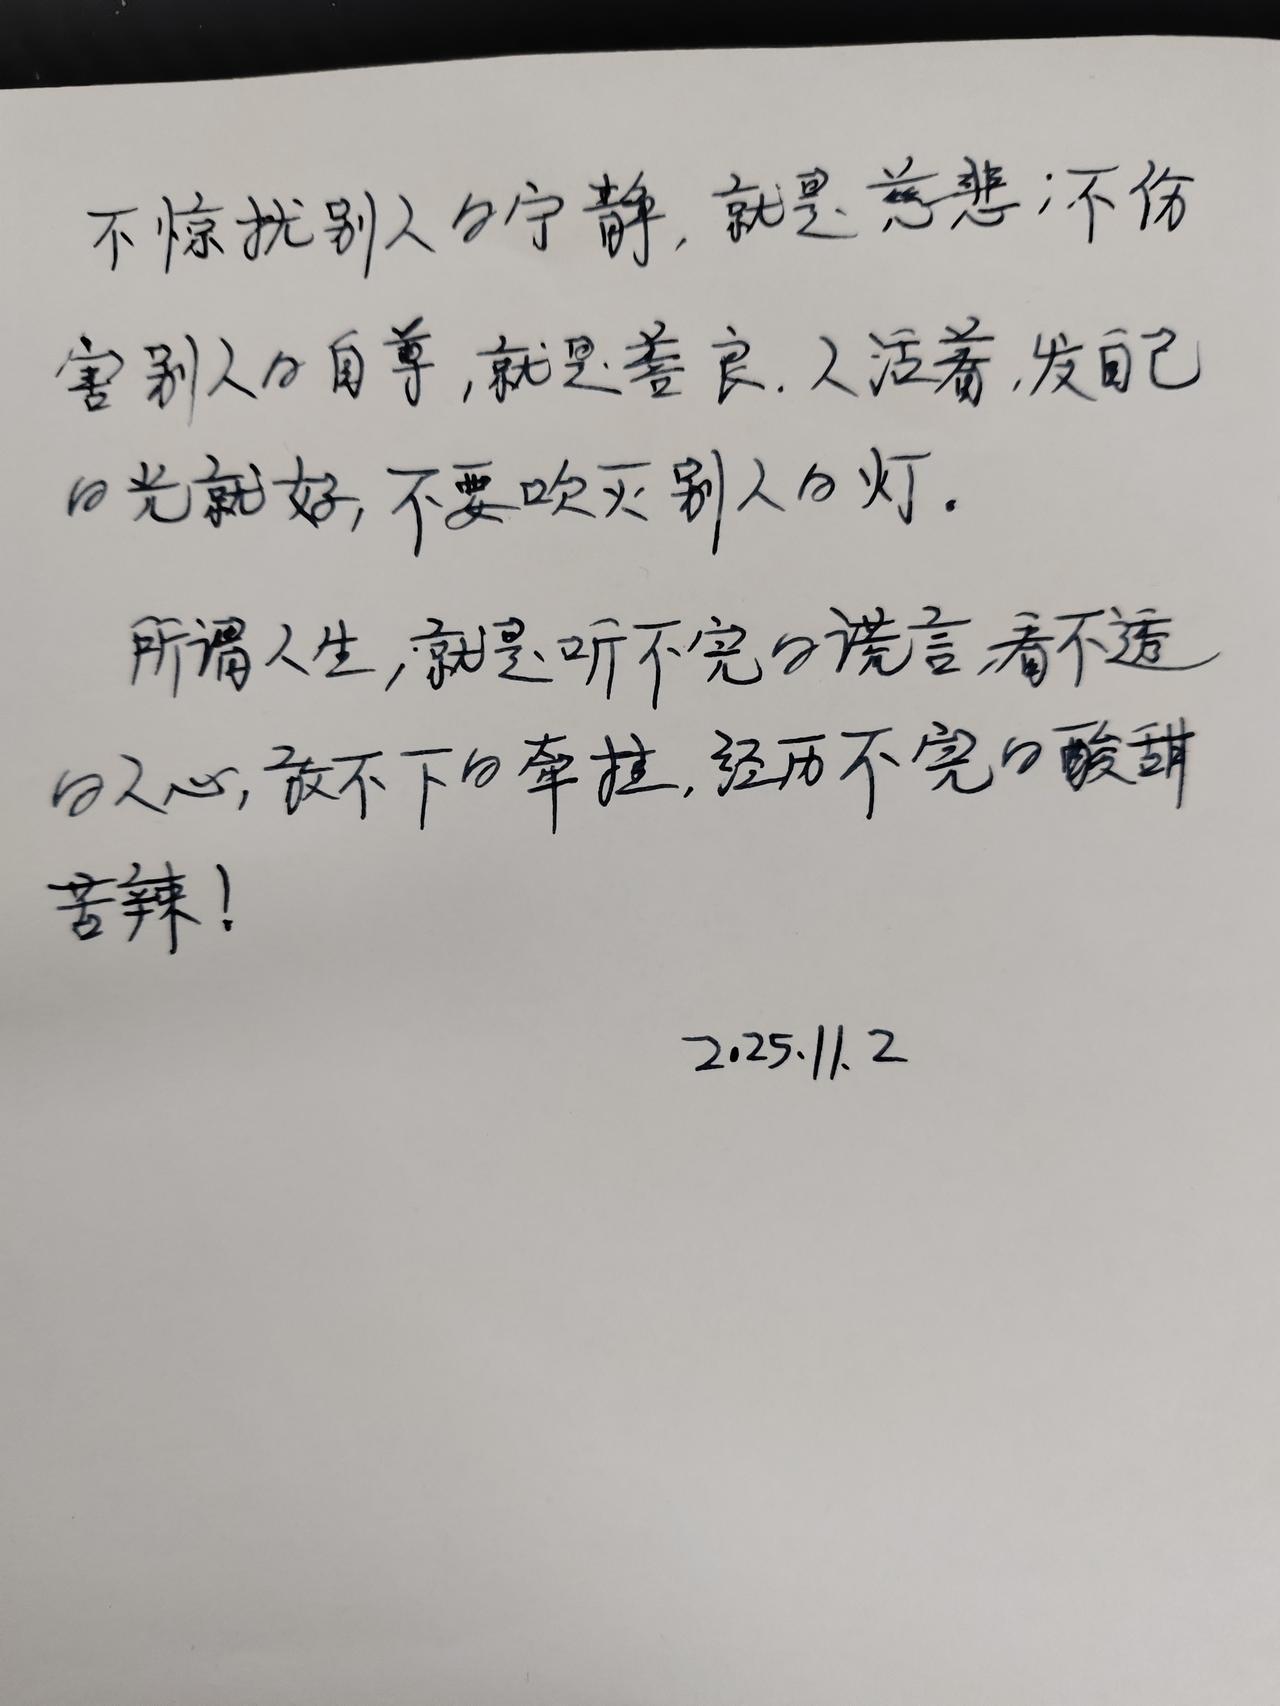 不惊扰别人的宁静,就是慈悲;不伤
害别人的自尊,就是善良.人活着,发自己
的光就好,不要吹灭别人的灯.
所谓人生,就是听不完的谎言,看不透
的人心,放不下的牵挂,经历不完的酸甜
苦辣!
2025.11.2